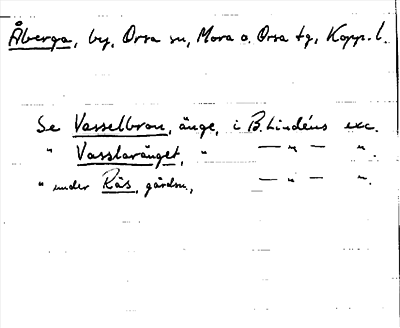 Åberga, by, Orsa sn, Mora o. Orsa tg, Kopp. l.
Se Vasselbron, änge, i B. Lindéns exc.
" Vasslaränget, " — " — ".
" under Räs, gårdsn., — " — ".